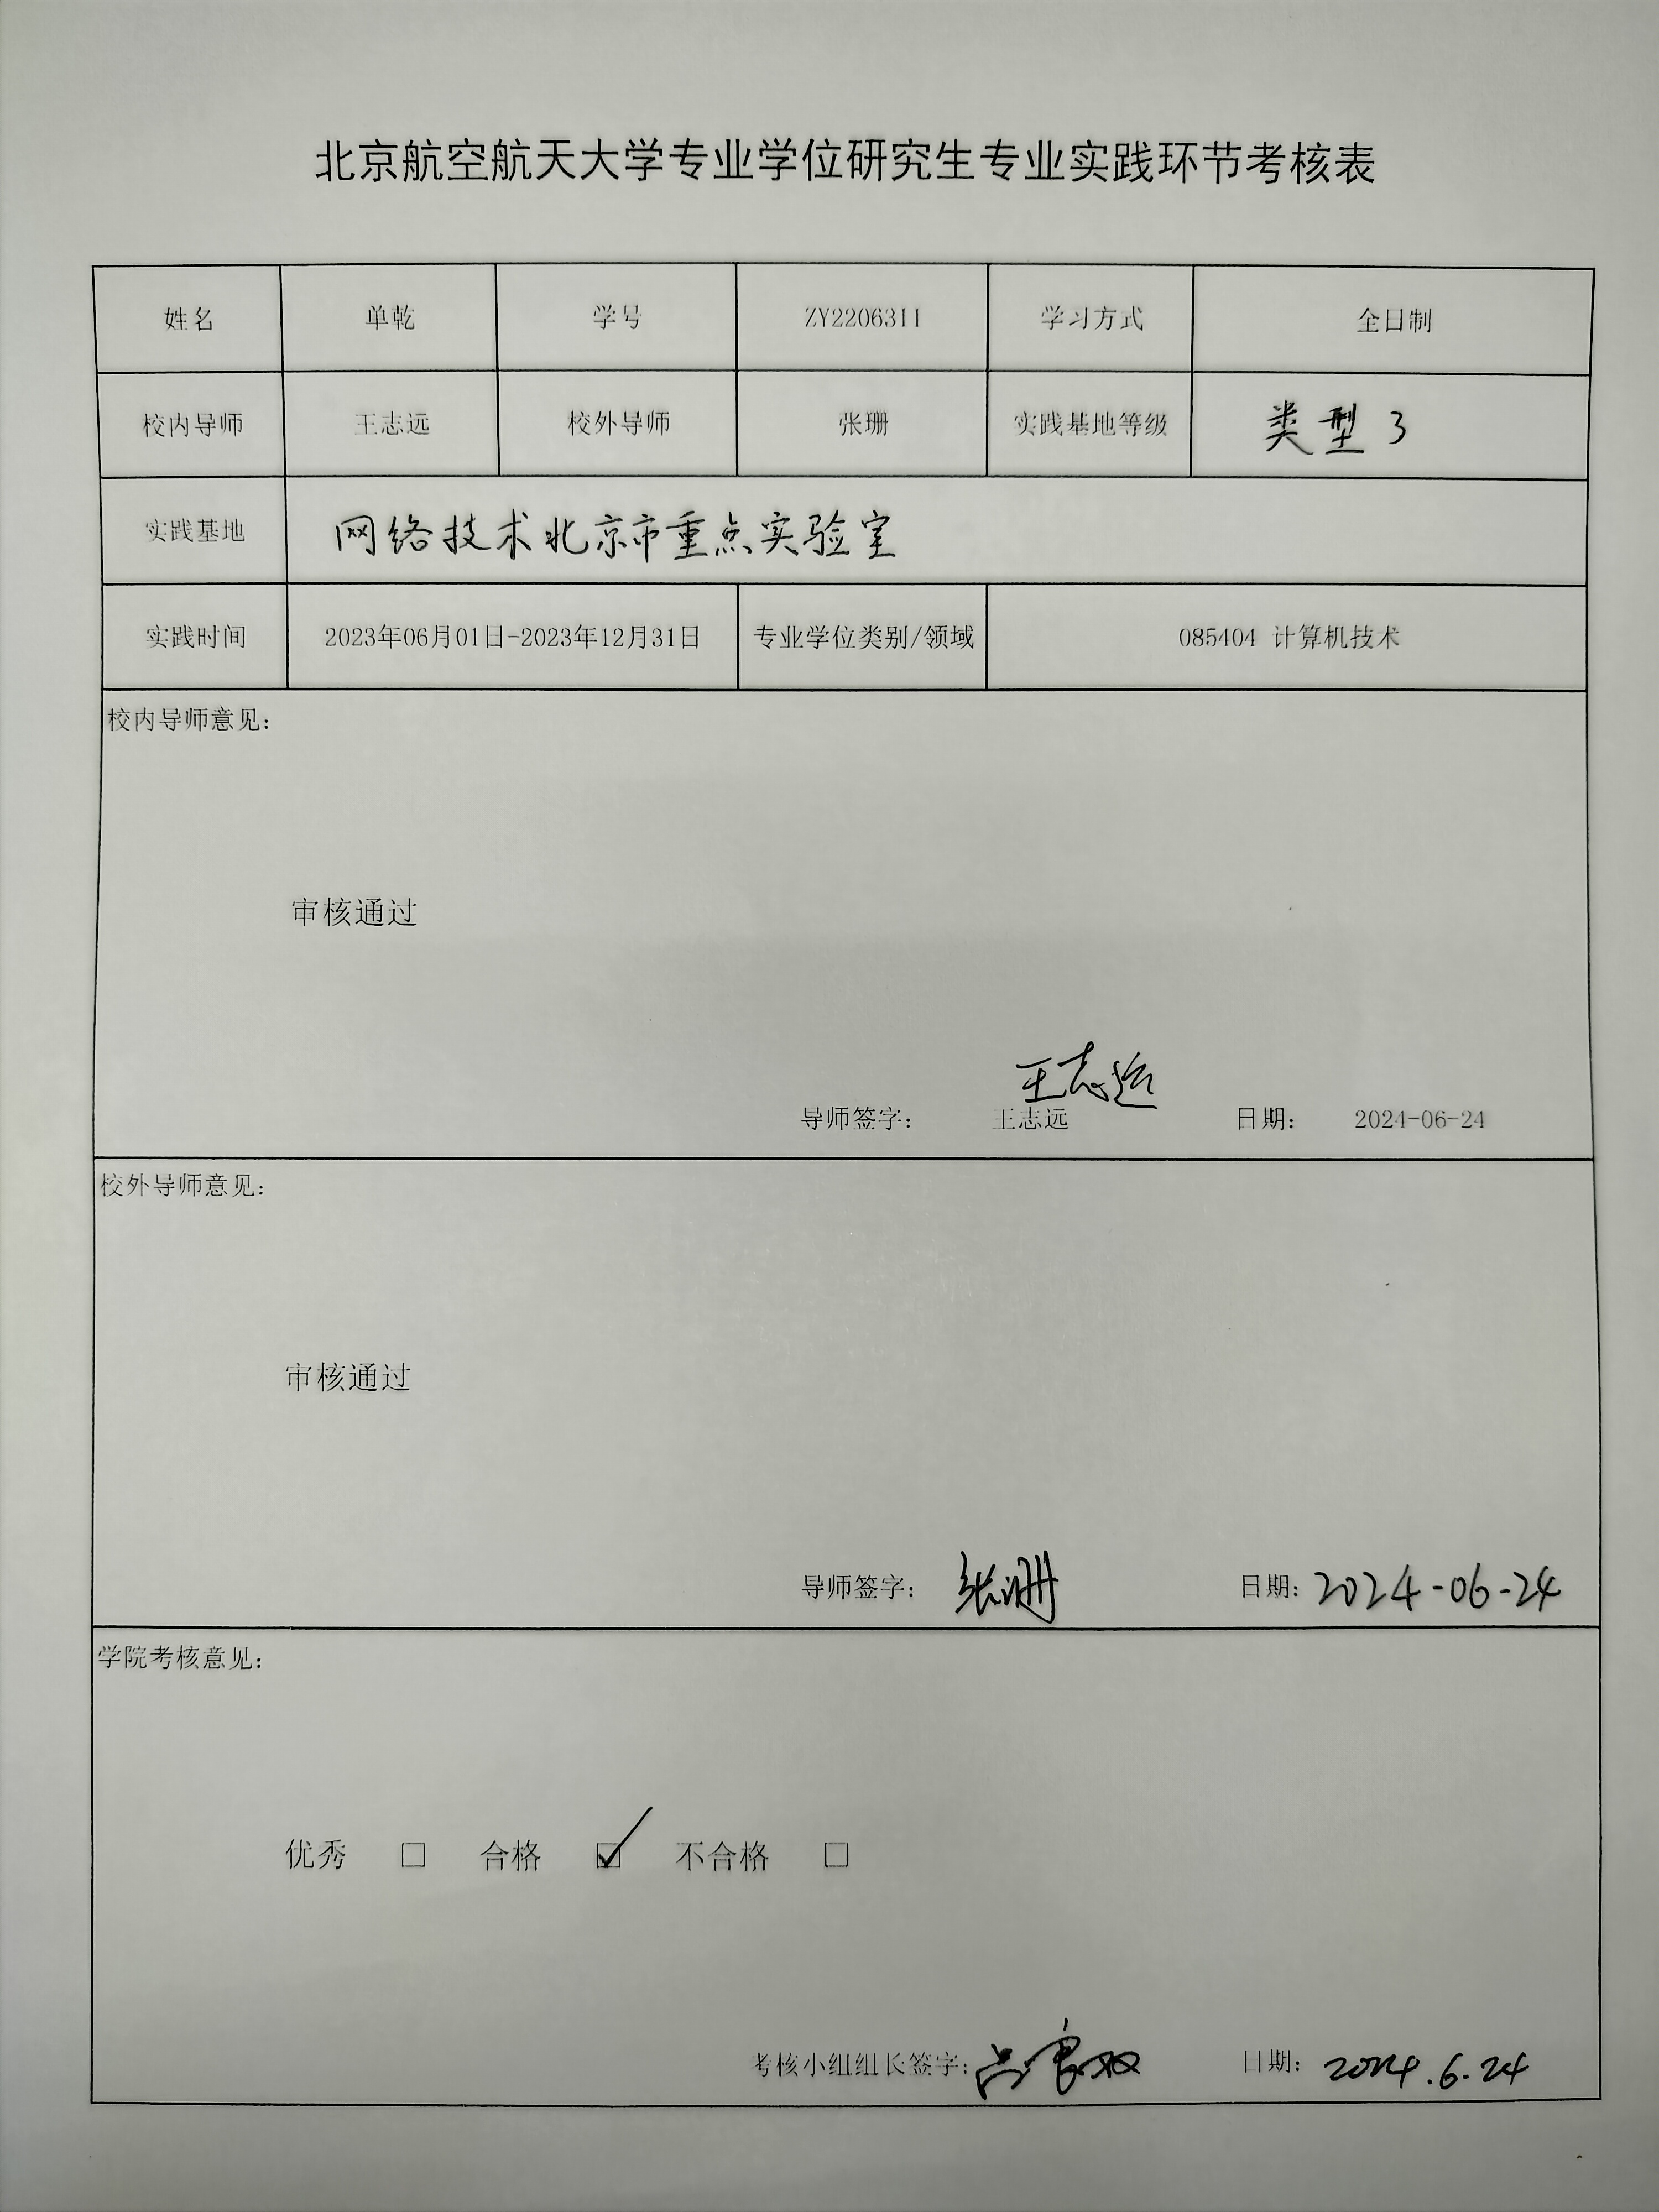 北京航空航天大学专业学位研究生专业实践环节考核表
姓名 单乾 学号 ZY2206311 学习方式 全日制
校内导师 王志远 校外导师 张珊 实践基地等级 类型3
实践基地 网络技术北京市重点实验室
实践时间 2023年06月01日-2023年12月31日 专业学位类别/领域 085404 计算机技术
校内导师意见:
审核通过
王志远
导师签字: 王志远 日期: 2024-06-24
校外导师意见:
审核通过
导师签字: 张珊 日期: 2024-06-24
学院考核意见:
优秀 □ 合格 ☑ 不合格 □
考核小组组长签字: 吕良双 日期: 2024.6.24